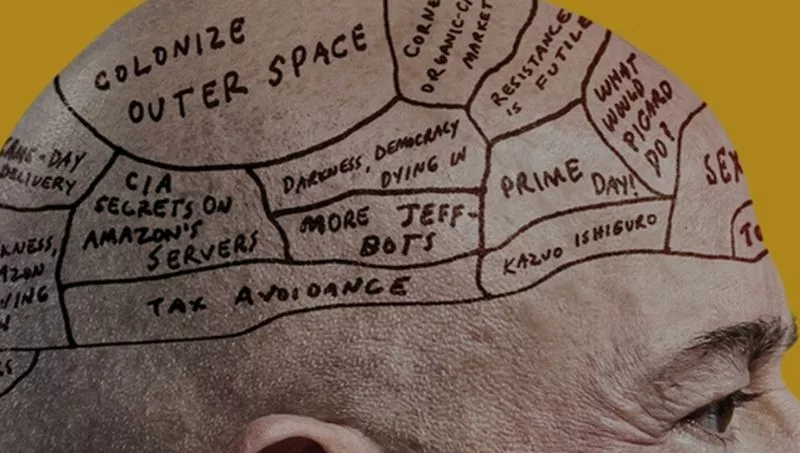 COLONIZE
OUTER SPACE
CORNE
ORGANIC-C
MARKET
RESISTANCE
IS FUTILE
WHAT
WOULD
PICARD
DO?
SAME-DAY
DELIVERY
CIA
SECRETS ON
AMAZON'S
SERVERS
DARKNESS, DEMOCRACY
DYING IN
MORE JEFF-
BOTS
PRIME
DAY!
SEX
TO
KNESS,
AZON
YING
N
TAX AVOIDANCE
KAZUO ISHIGURO